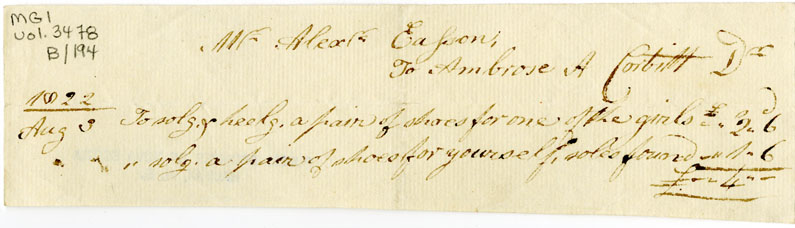 MG1
Vol. 3478
B/194
Mr Alexr Easson,
To Ambrose A Corbitt Dr
1822
Aug 3 To solg. & heelg. a pair of shoes for one of the girls £ " 2 " 6d
" " " solg. a pair of shoes for yourself, soles found " 1 " 6
£ " 4 "